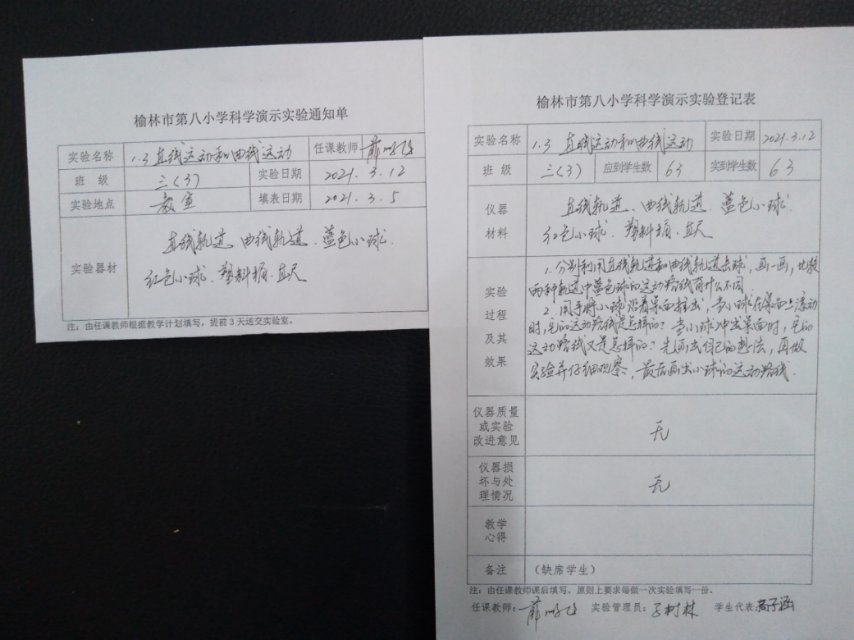 榆林市第八小学科学演示实验通知单
实验名称 1.3 直线运动和曲线运动 任课教师
班 级 三(3) 实验日期 2021.3.12
实验地点 教室 填表日期 2021.3.5
实验器材 直线轨道、曲线轨道、蓝色小球、
红色小球、塑料桶、直尺
注：由任课教师根据教学计划填写，提前3天送交实验室。
榆林市第八小学科学演示实验登记表
实验名称 1.3 直线运动和曲线运动 实验日期 2021.3.12
班 级 三(3) 应到学生数 63 实到学生数 63
仪器材料 直线轨道、曲线轨道、蓝色小球、
红色小球、塑料桶、直尺
实验过程及其效果 1.分别利用直线轨道和曲线轨道击球，画一画，比较
两种轨道中蓝色球的运动路线有什么不同。
2.用手将小球沿着桌面推出，当小球在桌面上滚动
时，它的运动路线是怎样的？当小球冲出桌面时，它的
运动路线又是怎样的？先画出自己的想法，再做
实验并仔细观察，最后画出小球的运动路线.
仪器质量或实验改进意见 无
仪器损坏与处理情况 无
教学心得
备注 (缺席学生)
注：由任课教师课后填写，原则上要求每做一次实验填写一份。
任课教师: 实验管理员: 学生代表: